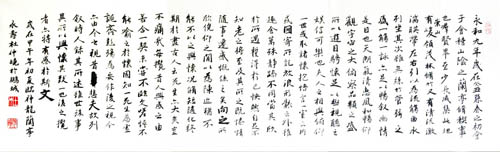 永和九年歲在癸丑暮春之初會
于會稽山陰之蘭亭脩禊事
也羣賢畢至少長咸集此地
有崇山峻領茂林脩竹又有清流激
湍暎帶左右引以為流觴曲水
列坐其次雖無絲竹管弦之
盛一觴一詠亦足以暢敘幽情
是日也天朗氣清惠風和暢仰
觀宇宙之大俯察品類之盛
所以遊目騁懷足以極視聽之
娛信可樂也夫人之相與俯仰
一世或取諸懷抱悟言一室之內
或因寄所託放浪形骸之外雖
趣舍萬殊靜躁不同當其欣
於所遇暫得於己快然自足不
知老之將至及其所之既惓情
隨事遷感慨係之矣向之所
欣俛仰之閒以為陳迹猶不
能不以之興懷況脩短隨化終
期於盡古人云死生亦大矣豈
不痛哉每攬昔人興感之由
若合一契未嘗不臨文嗟悼不
能喻之於懷固知一死生為虛
誕齊彭殤為妄作後之視今
亦由今之視昔悲夫故列
敘時人錄其所述雖世殊事
異所以興懷其致一也後之攬
者亦將有感於斯文
歲在甲午年初夏臨神龍蘭亭
永壽杜仲曉於鵬城